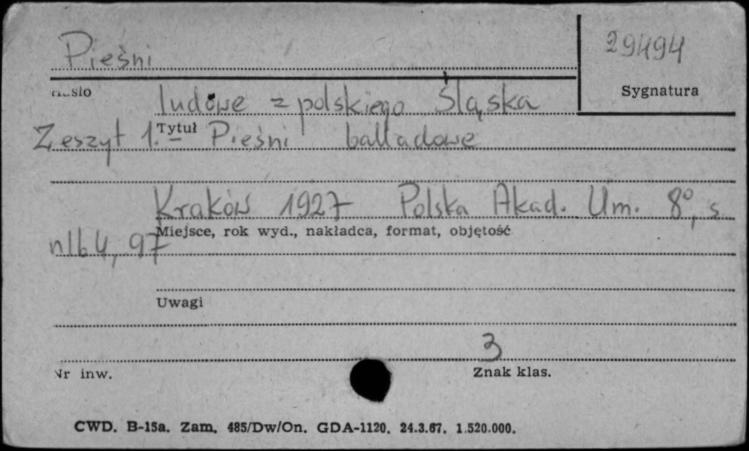 Pieśni
29494
Hasło
Sygnatura
ludowe z polskiego Śląska
Tytuł
Zeszyt 1. Pieśni balladowe
Kraków 1927 Polska Akad. Um. 8°, s.
Miejsce, rok wyd., nakładca, format, objętość
nlb 4, 97
Uwagi
3
Nr inw.
Znak klas.
CWD. B-15a. Zam. 485/Dw/On. GDA-1120. 24.3.67. 1.520.000.